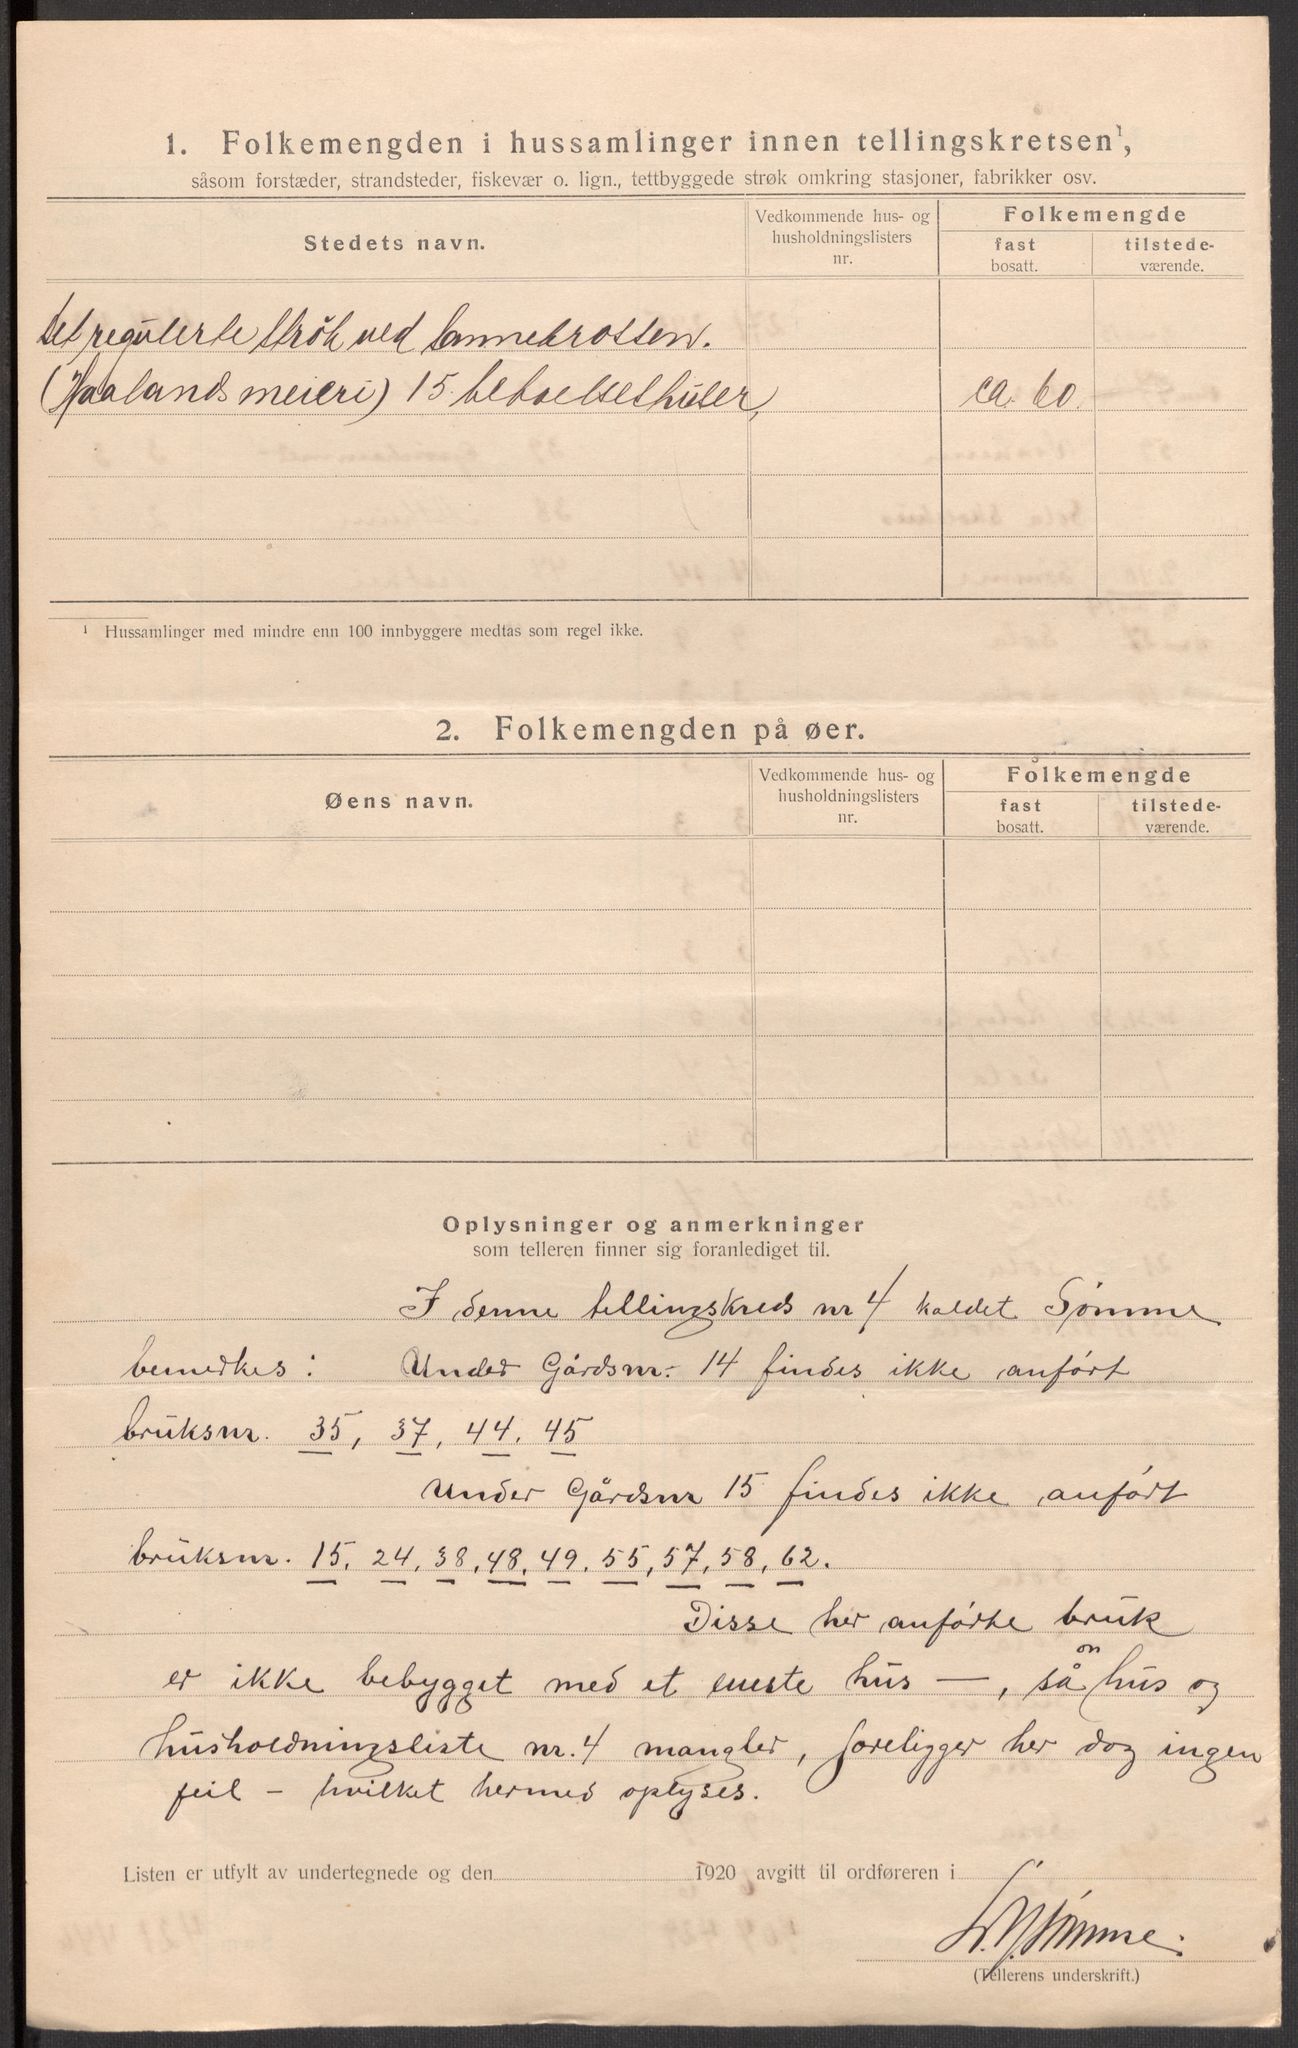 1. Folkemengden i hussamlinger innen tellingskretsen¹,
såsom forstæder, strandsteder, fiskevær o. lign., tettbyggede strøk omkring stasjoner, fabrikker osv.
Stedets navn.
Vedkommende hus- og husholdningslisters nr.
Folkemengde
fast bosatt.
tilstede-værende.
Det regulerte strøk ved
(Haalands meieri) 15 beboelseshuser, ca. 60
¹ Hussamlinger med mindre enn 100 innbyggere medtas som regel ikke.
2. Folkemengden på øer.
Øens navn.
Vedkommende hus- og husholdningslisters nr.
Folkemengde
fast bosatt.
tilstede-værende.
Oplysninger og anmerkninger
som telleren finner sig foranlediget til.
I denne tellingskreds nr 4 kaldet Sømme
bemerkes: Under Gårdsnr. 14 findes ikke anført
bruksnr. 35, 37, 44, 45
Under Gårdsnr 15 findes ikke anført
bruksnr. 15, 24, 38, 48, 49, 55, 57, 58, 62.
Disse her anførte bruk
er ikke bebygget med et eneste hus —, så om hus og
husholdningsliste nr. 4 mangler, foreligger her dog ingen
feil – hvilket hermed oplyses.
Listen er utfylt av undertegnede og den 1920 avgitt til ordføreren i
Sømme.
(Tellerens underskrift.)